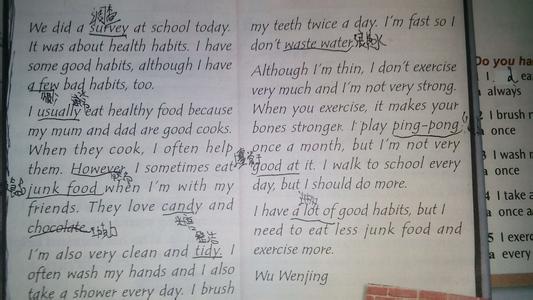 调查
We did a survey at school today.
It was about health habits. I have
some good habits, although I have
a few bad habits, too.
I usually eat healthy food because
my mum and dad are good cooks.
When they cook, I often help
them. However, I sometimes eat
junk food when I'm with my
friends. They love candy and
chocolate.
I'm also very clean and tidy. I
often wash my hands and I also
take a shower every day. I brush
my teeth twice a day. I'm fast so I
don't waste water.
Although I'm thin, I don't exercise
very much and I'm not very strong.
When you exercise, it makes your
bones stronger. I play ping-pong
once a month, but I'm not very
good at it. I walk to school every
day, but I should do more.
I have a lot of good habits, but I
need to eat less junk food and
exercise more.
Wu Wenjing
Do you ha
1 I
a always
I brush
a once
3 I wash
a once
4 I take a
a once a
5 I exerc
a every